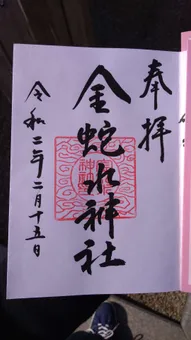 奉拝
金蛇水神社
令和二年二月十五日